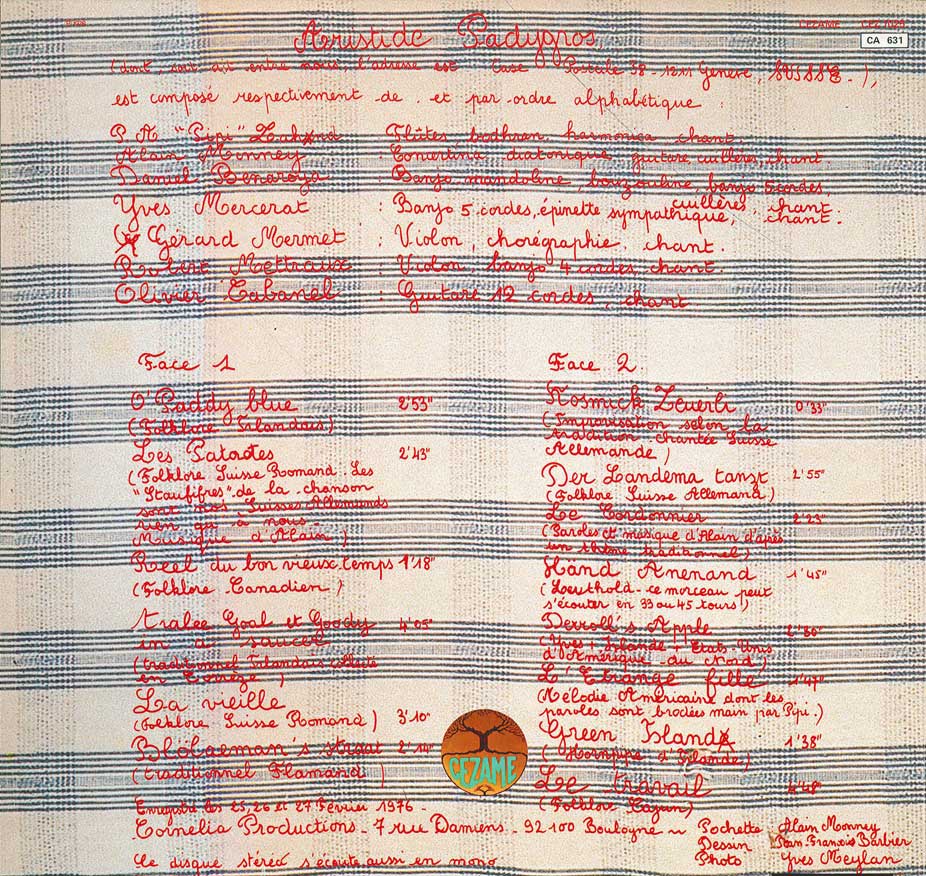 CEZAME CEZ 1023
CA 631
Aristide Padygros
(dont, soit dit entre nous, l'adresse est Case Postale 38 - 1211 Genève, ),
est composé respectivement de, et par ordre alphabétique :
P.A "Pipi" : Flûtes bodhran, harmonica chant
Alain Monney : Concertina diatonique guitare cuillères, chant.
Daniel Benaroya : Banjo mandoline, bouzouline, banjo 5 cordes,
cuillères, chant
Yves Mercerat : Banjo 5 cordes, épinette sympathique, chant.
Gérard Mermet : Violon, chorégraphie, chant.
Robert Mettraux : Violon, banjo 4 cordes, chant.
Olivier Cabanel : Guitare 12 cordes, chant
Face 1
O'Paddy blue 2'53"
(Folklore Irlandais)
Les Patates 2'43"
(Folklore Suisse Romand. Les
"Staufifres" de la chanson
sont nos Suisses Allemands
rien qu'à nous -
Musique d'Alain)
Reel du bon vieux temps 1'18"
(Folklore Canadien)
Tralee Goal et Goody 4'05"
in a saucer
(traditionnel Irlandais collecté
en Corrèze)
La vieille
(Folklore Suisse Romand) 3'10"
straat
(traditionnel Flamand)
Enregistré les 25, 26 et 27 Février 1976 -
Cornelia Productions - 7 rue Damiens - 92100 Boulogne
Ce disque stéréo s'écoute aussi en mono
Face 2
Kosmick Zeuerli 0'33"
(Improvisation selon la
tradition chantée Suisse
Allemande)
Der Landema tanzt 2'55"
(Folklore Suisse Allemand)
Le Cordonnier 2'23"
(Paroles et musique d'Alain d'après
un thème traditionnel)
Händ Anenand 1'45"
(Leuthold - ce morceau peut
s'écouter en 33 ou 45 tours!)
Derroll's Apple
(Yves + Irlande + Etats-Unis
d'Amérique - du Nord)
L'Etrange fille 1'47"
(Mélodie Américaine dont les
paroles sont brodées main par Pipi.)
Green Island 1'38"
(Hornpipe d'Irlande)
Le travail 4'48"
(Folklore Cajun)
Pochette Alain Monney
Dessin Jean-François Barbier
Photo Yves Meylan
CEZAME